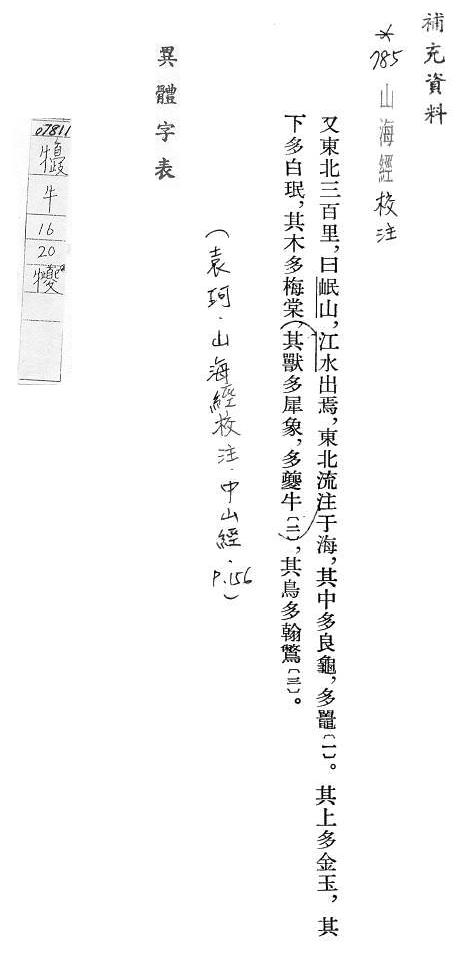 補充資料
*785 山海經校注
又東北三百里，曰岷山，江水出焉，東北流注于海，其中多良龜，多鼉〔一〕。其上多金玉，其
下多白珉，其木多梅棠，其獸多犀象，多夔牛〔二〕，其鳥多翰鷩〔三〕。
（袁珂．山海經校注．中山經．P.156）
異體字表
07811
牛
16
20
犪